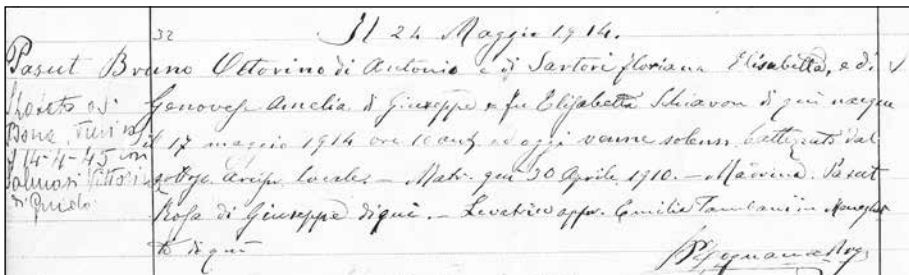 32
Il 24 Maggio 1914.
Pasut Bruno Ottorino di Antonio e di Sartori floriana Elisabetta, e di
Genovese Amelia di Giuseppe e fu Elisabetta Schiavon di qui nacque
il 17 maggio 1914 ore 10 ant, ed oggi venne solenn. battezzato dal
sottosc. arcipr. locale. — Matr. qui 30 Aprile 1910. — Madrina Pasut
Rosa di Giuseppe di qui. — Levatrice appr. Emilia in
di qui
Sposato
Turi
il 14-4-45 con
Vittoria
di Guido